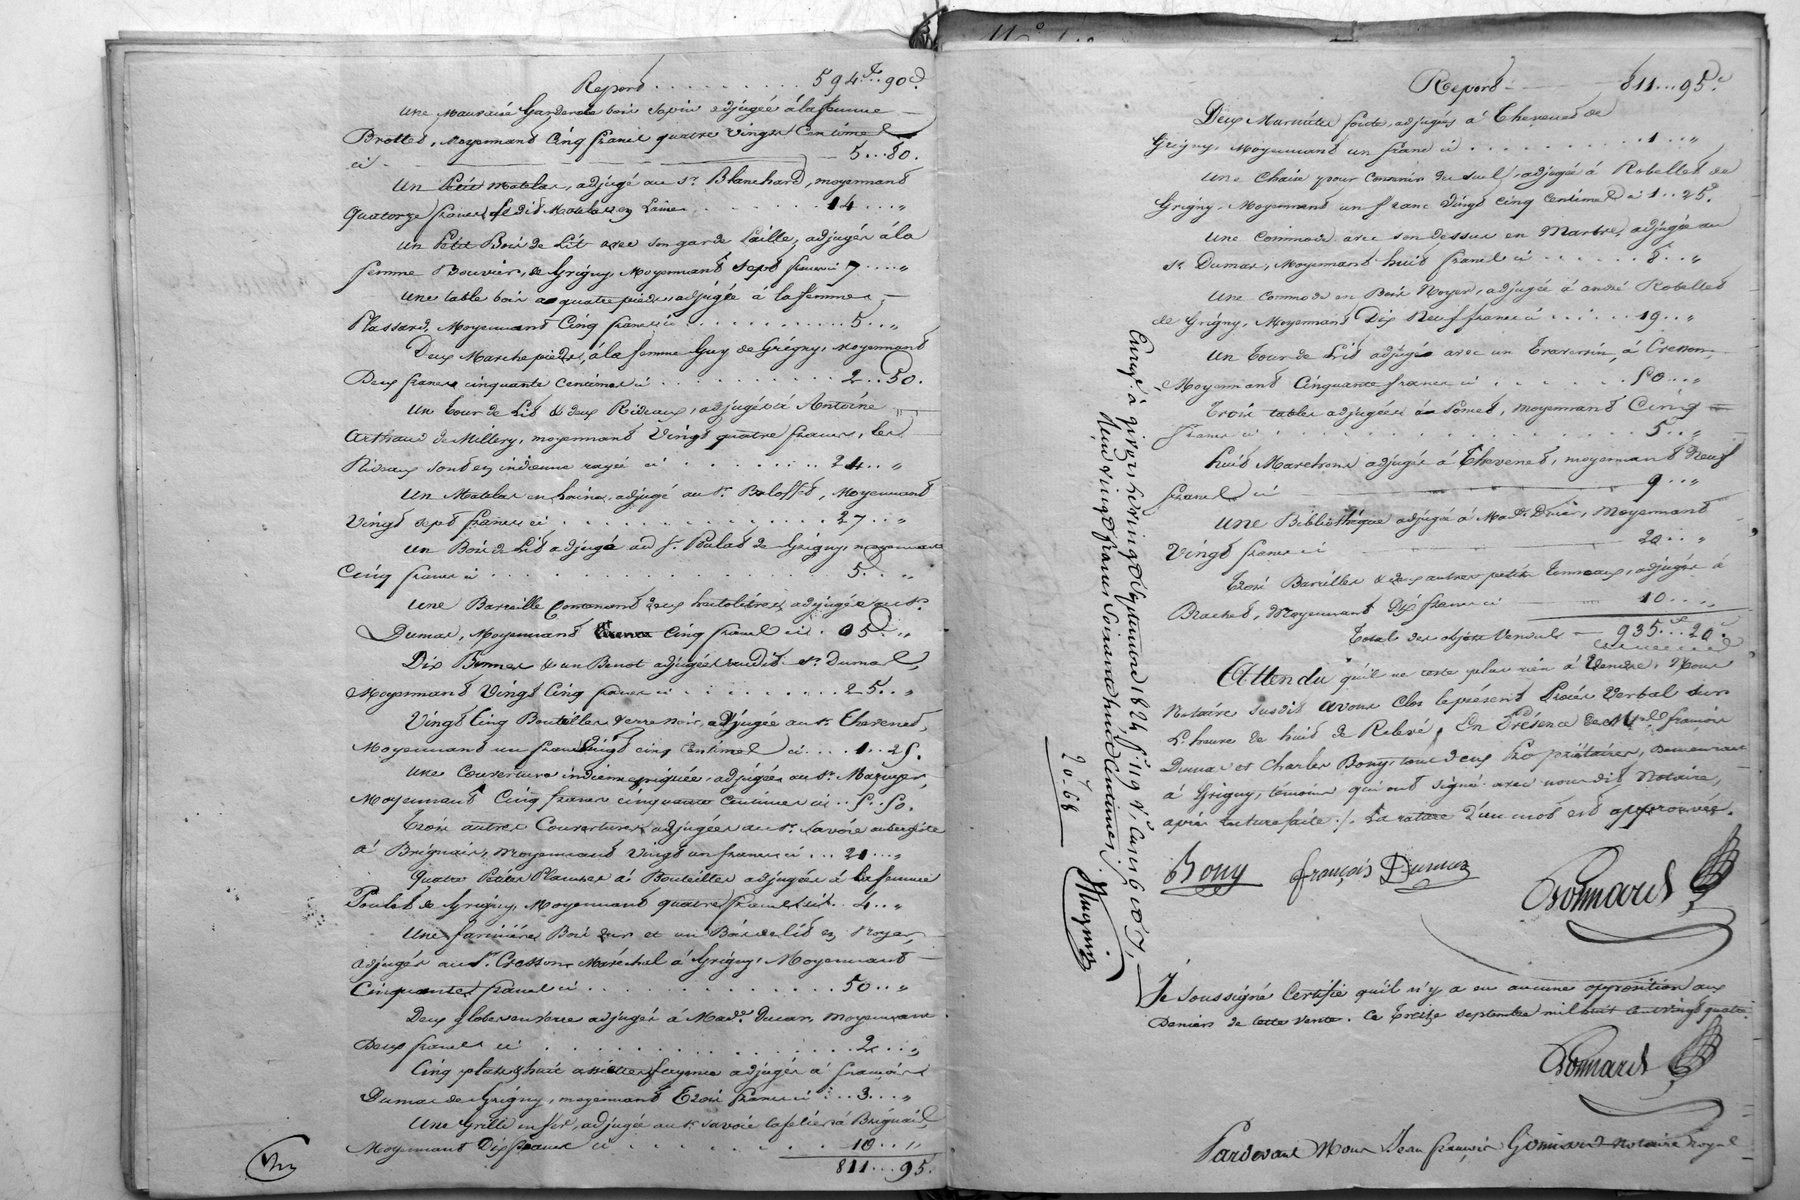 Report . . . . . . . . . 594 f. 90 c.
une Mauvaise Garderobe bois sapin adjugée à la femme
Brottet, Moyennant Cinq francs quatre vingt Centimes
ci - 5 .. 80.
un Petit Matelas, adjugé au Sr. Blanchard, moyennant
quatorze francs, ledit Matelas en Laine . . . . 14 .. "
un Petit Bois de Lit avec son garde paille, adjugés à la
femme Bouvier, de Grigny, Moyennant Sept francs ci 7 .. "
une table bois à quatre pieds, adjugée à la femme
Plassard, Moyennant Cinq francs ci . . . . . 5 .. "
Deux Marchepieds, à la femme Guy de Grigny, Moyennant
Deux francs cinquante Centimes ci . . . . . 2 .. 50.
un Tour de Lit & deux Rideaux, adjugés à Antoine
Arthaud de Millery, moyennant Vingt quatre francs, les
Rideaux sont en indienne rayée ci . . . . . 24 .. "
un Matelas en Laine, adjugé au Sr. Baloffet, Moyennant
Vingt sept francs ci . . . . . 27 .. "
un Bois de Lit adjugé au Sr. Poulat de Grigny, moyennant
Cinq francs ci . . . . . 5 .. "
une Bareille Contenant deux hectolitres, adjugée au Sr.
Dumas, Moyennant Cinq francs ci . 05 .. "
Dix Bennes & un Benot adjugés audit Sr. Dumas,
Moyennant Vingt Cinq francs ci . . . . . 25 .. "
Vingt Cinq Bouteilles verre noir, adjugée au Sr. Thevenet,
Moyennant un franc Vingt cinq Centimes ci . . . 1 .. 25.
une Couverture indienne piquée, adjugée au Sr. Mazuyer,
Moyennant Cinq francs cinquante Centimes ci . . 5 . 50.
Trois autres Couvertures adjugées au Sr. Savoie aubergiste
à Brignais, Moyennant Vingt un francs ci . . . 21 .. "
quatre Petites Planches à Bouteilles adjugées à la femme
Poulat de Grigny, Moyennant quatre francs ci . 4 .. "
Une farinière Bois dur et un Bois de lit en Noyer,
adjugés au Sr. Cresson Maréchal à Grigny, Moyennant
Cinquante francs ci . . . . . 50 .. "
Deux globes en Verre adjugés à Made. Ducar, Moyennant
Deux francs ci . . . . . 2 .. "
Cinq plats & huit assiettes fayence adjugés à françois
Dumas de Grigny, moyennant Trois francs ci . . 3 .. "
Une Grille en fer, adjugée au Sr. Savoie à Brignais,
Moyennant Dix francs ci . . . . . 10 .. "
811 ... 95.
Report - 811 ... 95 c.
Deux Marmites fonte, adjugées à Thevenet de
Grigny, Moyennant un franc ci . . . . . 1 .. "
Une Chaise pour Contenir du sel, adjugée à Robellet de
Grigny, Moyennant un franc Vingt cinq Centimes ci 1 .. 25.
Une Commode avec son dessus en Marbre, adjugée au
Sr. Dumas, Moyennant huit francs ci . . . . . 8 .. "
Une Commode en Bois Noyer, adjugée à andré Robellet
de Grigny, Moyennant Dix Neuf francs ci . . . . 19 .. "
un Tour de Lit adjugé avec un Traversin, à Cresson,
Moyennant Cinquante francs ci . . . . . 50 .. "
Trois tables adjugées à Pomet, moyennant Cinq
francs ci . . . . . 5 .. "
huit adjugés à Thevenet, moyennant Neuf
francs ci 9 .. "
Une Bibliothèque adjugée à Made. Drier, Moyennant
Vingt francs ci 20 .. "
Trois Bareilles & deux autres petits Tonneaux, adjugés à
Brachet, Moyennant Dix francs ci 10 .. "
Total des objets Vendus - 935 f. 20 c.
Attendu qu'il ne reste plus rien à Vendre, Nous
Notaire susdit avons Clos le présent Procès Verbal sur
L'heure de huit de Relevé, En Présence de MM. françois
Dumas et Charles Bony, tous deux Propriétaires, demeurant
à Grigny, témoins qui ont signé avec nous dit Notaire,
après lecture faite ./. La rature d'un mot est approuvée.
Bony françois Dumas
Je soussigné Certifie qu'il n'y a eu aucune opposition aux
Deniers de cette vente. Ce Treize septembre mil huit cent vingt quatre.
Pardevant Nous Jean françois notaire royal
Enreg. à givors le vingt Septembre 1824, f° 119 v°
Reçu vingt francs Soixante huit Centimes.
20.68